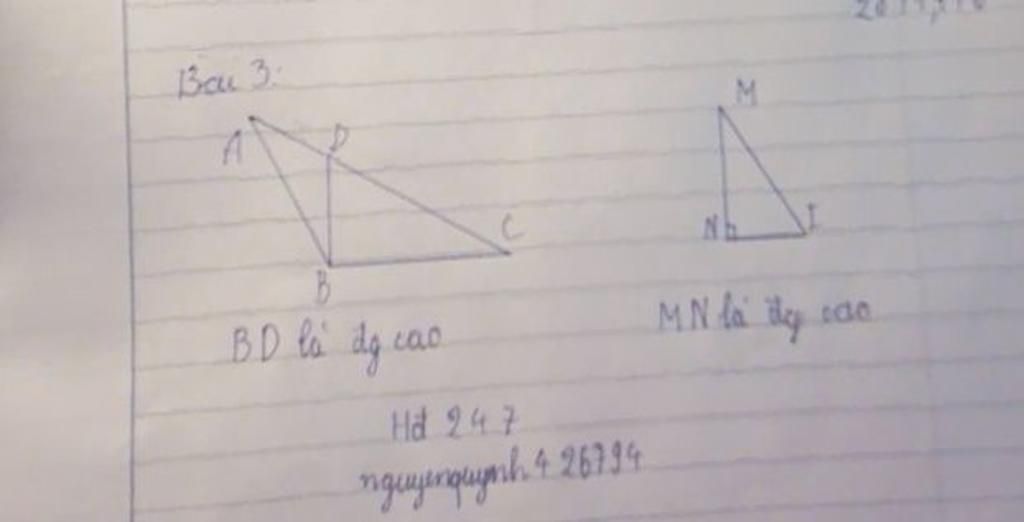 Bài 3:
A
D
B
C
M
N
I
BD là đg cao
MN là đg cao
Hđ 247
nguyenquynh426794